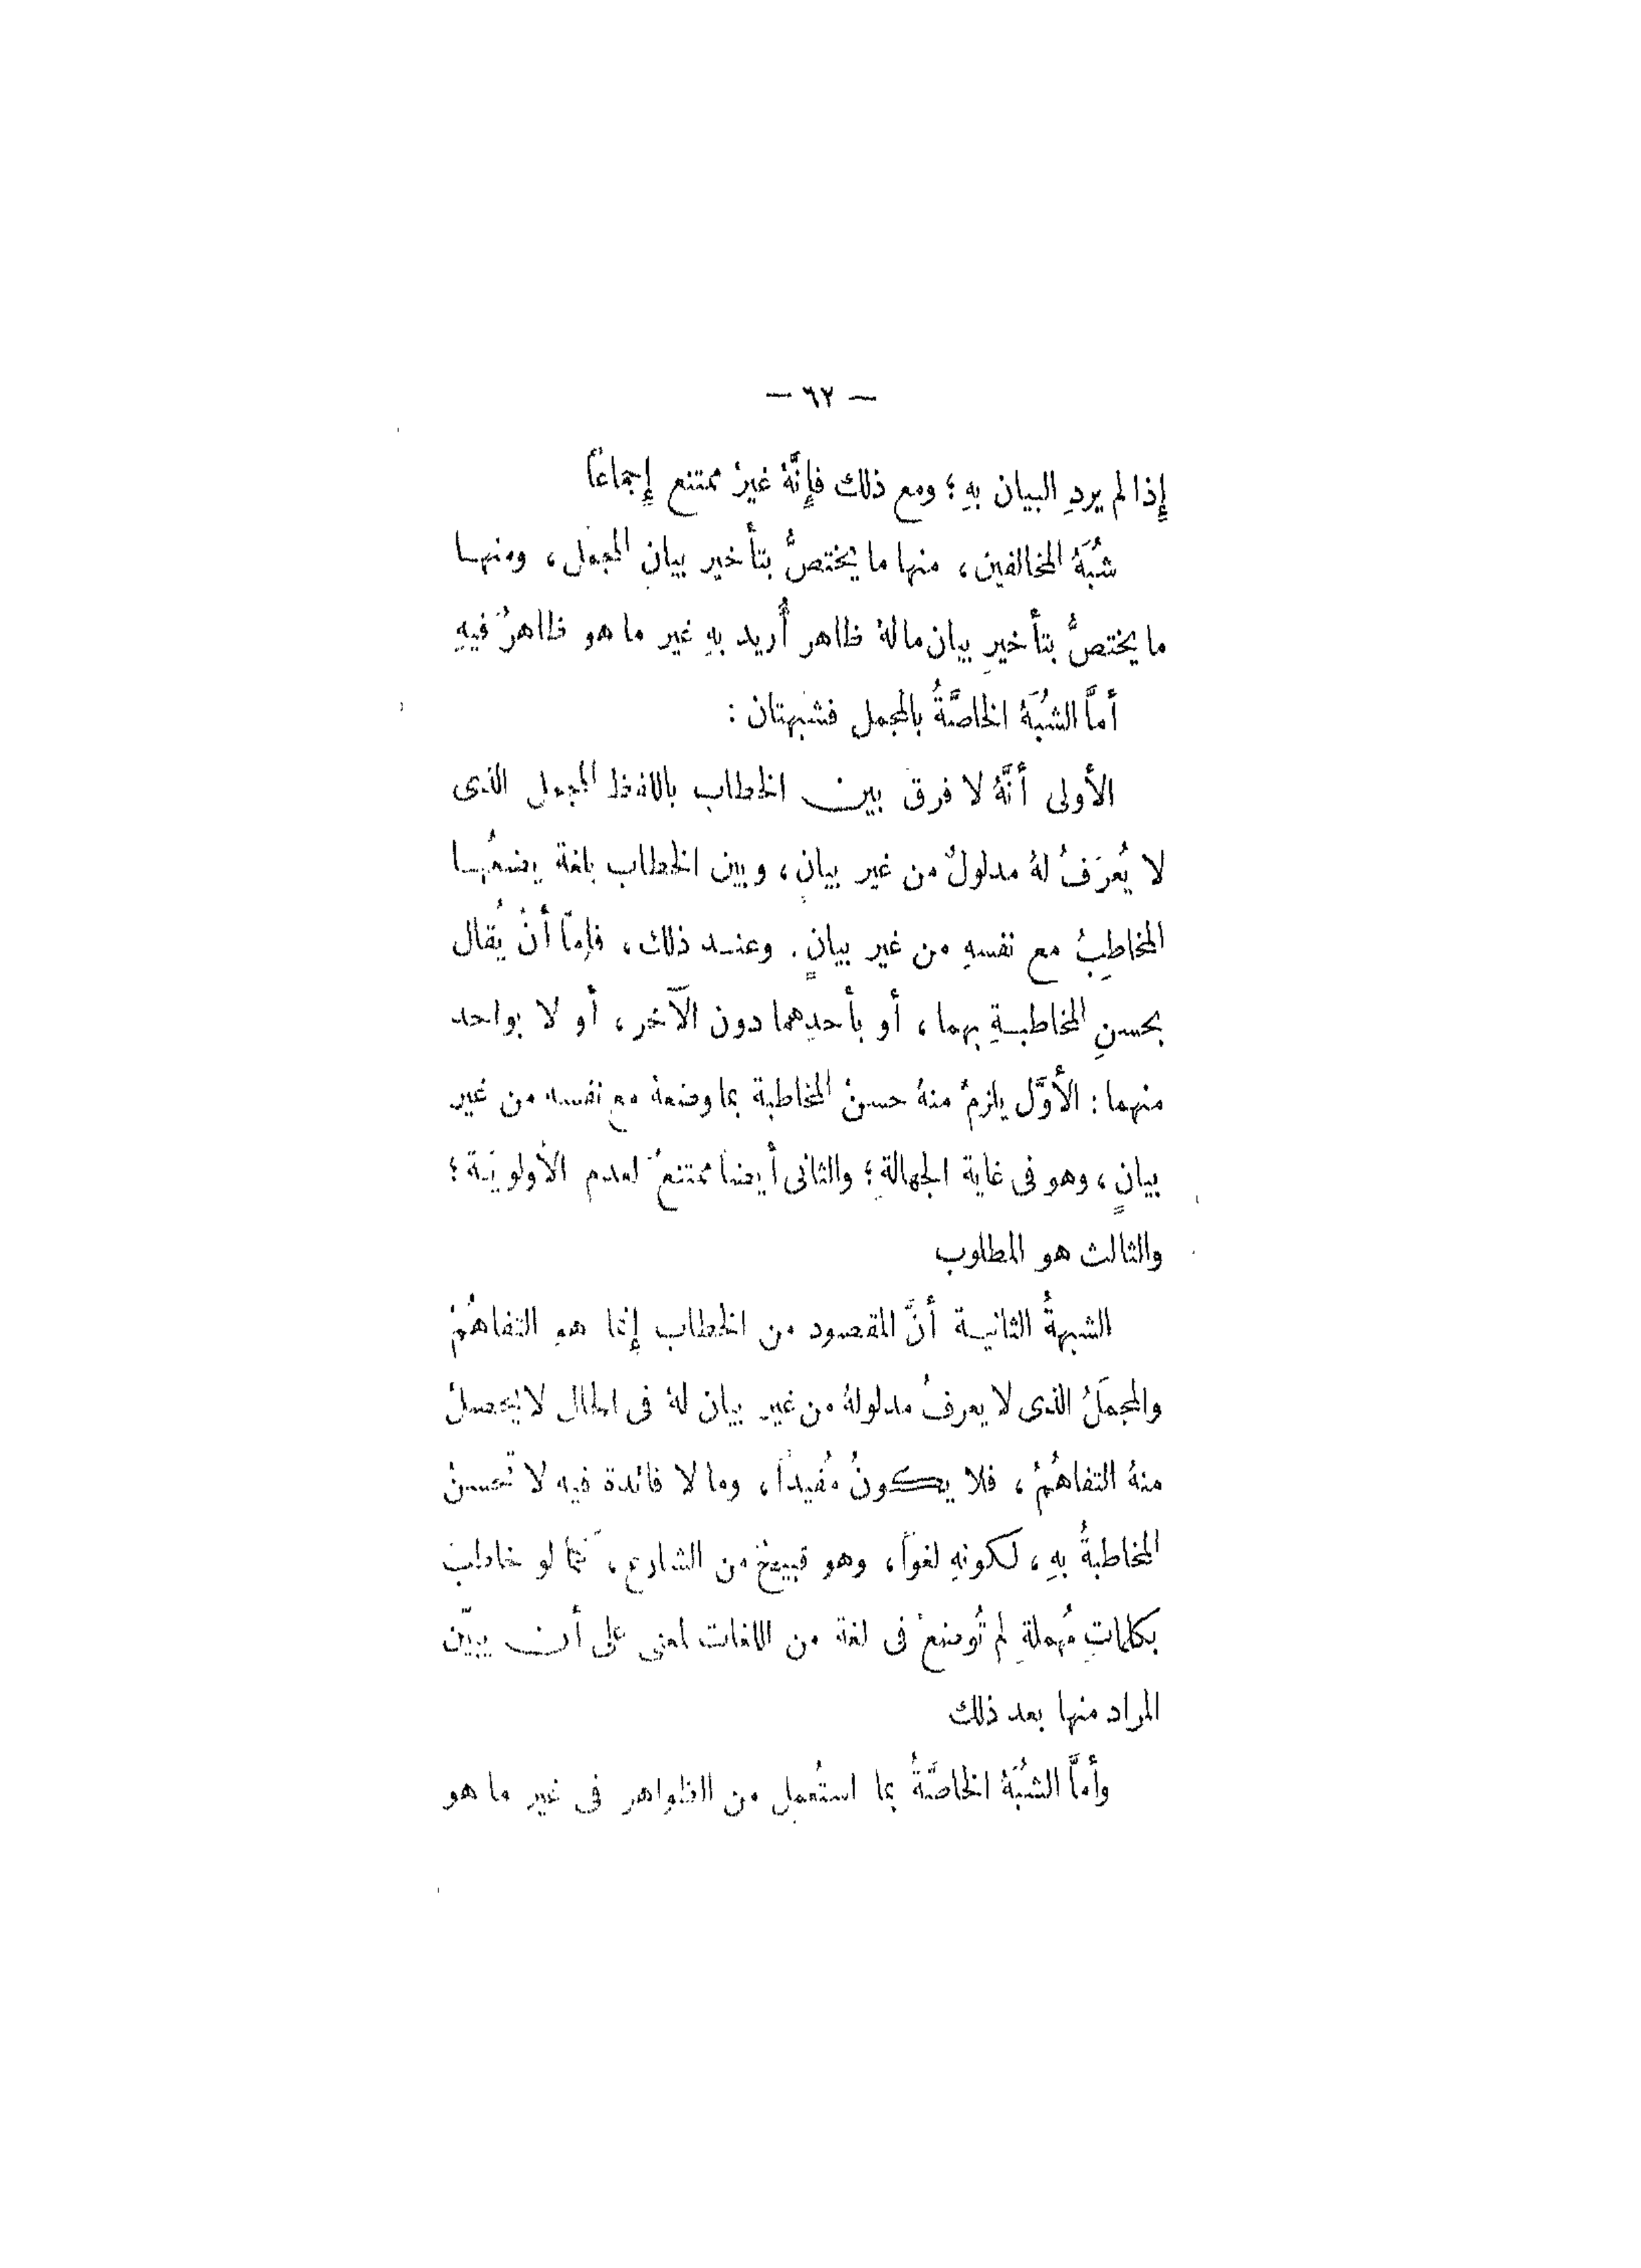 — ٦٢ —
إِذا لم يردِ البيان بهِ؛ ومع ذلك فإِنَّهُ غيرُ ممتنع إِجماعًا
شُبَهُ المخالفين، منها ما يختصُّ بتأخير بيانِ المجمل، ومنها
ما يختصُّ بتأخيرِ بيان ما لهُ ظاهر أُريد بهِ غير ما هو ظاهرٌ فيهِ
أَمَّا الشُبَهُ الخاصَّةُ بالمجمل فشبهتان:
الأولى أنَّهُ لا فرق بين الخطاب باللفظ المجمل الذى
لا يُعرَفُ لهُ مدلولٌ من غير بيانٍ، وبين الخطاب بلغة يضعُها
المخاطِبُ مع نفسهِ من غير بيانٍ. وعند ذلك، فإمّا أنْ يُقال
بحسنِ المخاطبةِ بهما، أو بأحدِهما دون الآخر، أو لا بواحد
منهما: الأَوَّل يلزمُ منهُ حسنُ المخاطبة بما وضعهُ مع نفسه من غير
بيانٍ، وهو فى غاية الجهالةِ؛ والثانى أيضاً ممتنعٌ لعدم الأولويّة؛
والثالث هو المطلوب
الشبهةُ الثانية أنَّ المقصود من الخطاب إِنما هو التفاهُمُ
والمجمَلُ الذى لا يعرفُ مدلولهُ من غير بيان لهُ فى الحال لا يحصلُ
منهُ التفاهُمُ، فلا يكونُ مُفيداً، وما لا فائدة فيه لا تحسنُ
المخاطبةُ بهِ، لكونهِ لغواً، وهو قبيحٌ من الشارع، كما لو خاطب
بكلماتٍ مُهملةٍ لم تُوضعْ فى لغة من اللغات لمعنى على أن يبيّن
المراد منها بعد ذلك
وأَمَّا الشُبَهُ الخاصَّةُ بما استُعمِل من الظواهر فى غير ما هو